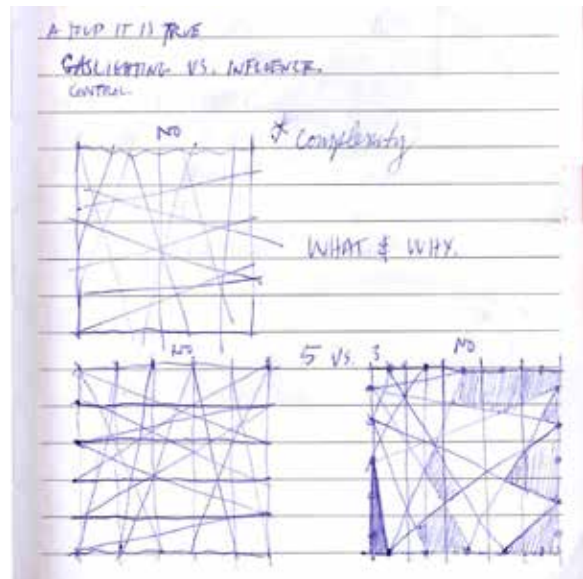 A IT IS TRUE
GASLIGHTING VS. INFLUENCE.
CONTROL
NO
* Complexity
WHAT & WHY.
NO
5 VS. 3
NO